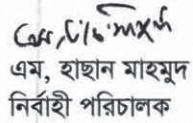 এম, হাছান মাহমুদ
নির্বাহী পরিচালক